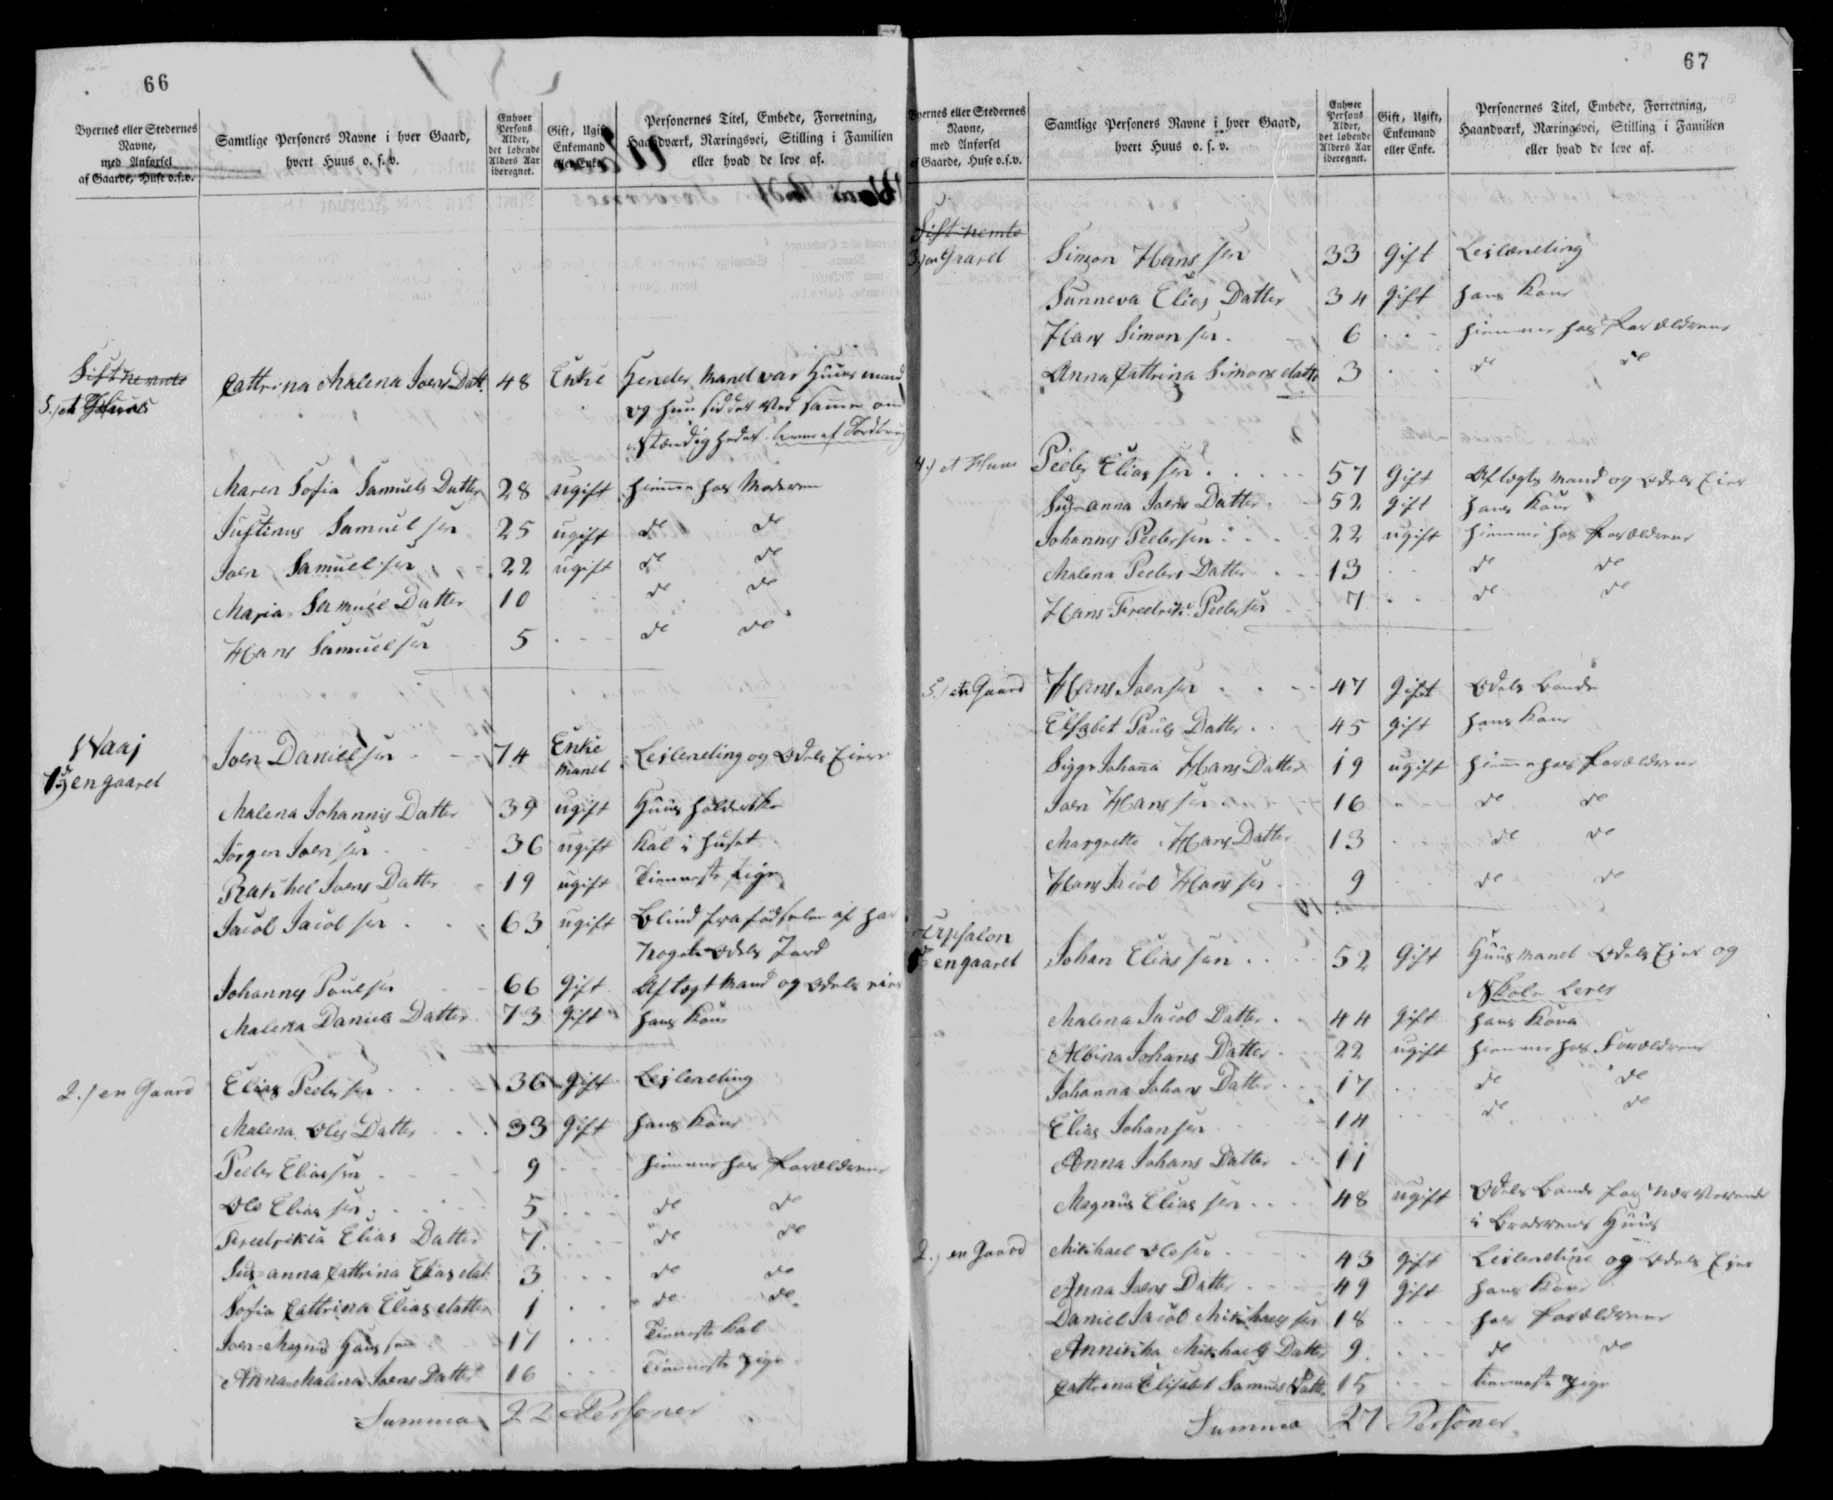 66
Byernes eller Stedernes
Navne,
med Anførsel
af Gaarde, Huse o.s.v.
Samtlige Personers Navne i hver Gaard,
hvert Huus o. s. v.
Enhver
Persons
Alder,
det løbende
Alders Aar
iberegnet.
Gift, Ugift,
Enkemand
eller Enke.
Personernes Titel, Embede, Forretning,
Haandværk, Næringsvei, Stilling i Familien
eller hvad de leve af.
Sistnemte
5.) et Huus
Cattrina Malena Joens Datt. 48 Enke Hendes Mand var Huusmand
og hun sidder ved samme om
stændigheder
Maren Sofia Samuels Datter 28 ugift hiemme hos Moderen
Justinus Samuelsen 25 ugift do do
Joen Samuelsen 22 ugift do do
Maria Samuel Datter 10 do do
Hans Samuelsen 5 do do
Waaj
1.) en gaard
Joen Danielsen 74 Enke mand Leilending og Odels Eier
Malena Johannis Datter 39 ugift Huusholderske
Jørgen Joensen 36 ugift Kal i Huset
Rakhel Joens Datter 19 ugift Tieneste Pige
Jacob Jacobsen 63 ugift Blind fra fødselen af har
noget Odels Jord
Johannes Poulsen 66 Gift Aflægt Mand og Odels eier
Malena Daniels Datter 73 Gift hans Kone
2.) en Gaard
Elias Peetersen 36 Gift Leilending
Malena Oles Datter 33 Gift hans Kone
Peeter Eliassen 9 hiemme hos Forældrene
Ole Eliassen 5 do do
Fredrikka Elias Datter 7 do do
Susanna Cattrina Elias dat. 3 do do
Sofia Cattrina Elias datter 1 do do
Joen Magnus Hanssen 17 Tieneste Kal
Anna Malena Joens Datter 16 Tieneste Pige
Summa 22 Personer
67
Byernes eller Stedernes
Navne,
med Anførsel
af Gaarde, Huse o.s.v.
Samtlige Personers Navne i hver Gaard,
hvert Huus o. s. v.
Enhver
Persons
Alder,
det løbende
Alders Aar
iberegnet.
Gift, Ugift,
Enkemand
eller Enke.
Personernes Titel, Embede, Forretning,
Haandværk, Næringsvei, Stilling i Familien
eller hvad de leve af.
Sistnemte
3.) en Gaard
Simon Hanssen 33 Gift Leilending
Sunneva Elias Datter 34 Gift hans Kone
Hans Simonsen 6 hiemme hos Forældrene
Anna Cattrina Simons datter 3 do do
4.) et Huus
Peeter Eliassen 57 Gift Aflægts Mand og Odels Eier
Susanna Joens Datter 52 Gift hans Kone
Johannes Peetersen 22 ugift hiemme hos Forældrene
Malena Peeters Datter 13 do do
Hans Fredrik Peetersen 7 do do
5.) en Gaard
Hans Joensen 47 Gift Odels Bonde
Elsebet Pauls Datter 45 Gift hans Kone
Sigga Johanna Hans Datter 19 ugift hiemme hos Forældrene
Joen Hanssen 16 do do
Margrette Hans Datter 13 do do
Hans Jacob Hanssen 9 do do
10
Urpsalon
1.) en gaard
Johan Eliassen 52 Gift Huusmand Odels Eier og
Skole Lerer
Malena Jacob Datter 44 Gift hans Kone
Albina Johans Datter 22 ugift hiemme hos Forældrene
Johanna Johans Datter 17 do do
Elias Johansen 14 do do
Anna Johans Datter 11
Magnus Eliassen 48 ugift Odels Bonde for Nærværende
i Broderens Huus
2.) en Gaard
Mikkael Olesen 43 Gift Leilending og Odels Eier
Anna Joens Datter 49 Gift hans Kone
Daniel Jacob Mikkaelsen 18 hos Forældrene
Annikka Mikkaels Datter 9 do do
Cattrina Elisabet Samuels Datter 15 tieneste Pige
Summa 27 Personer